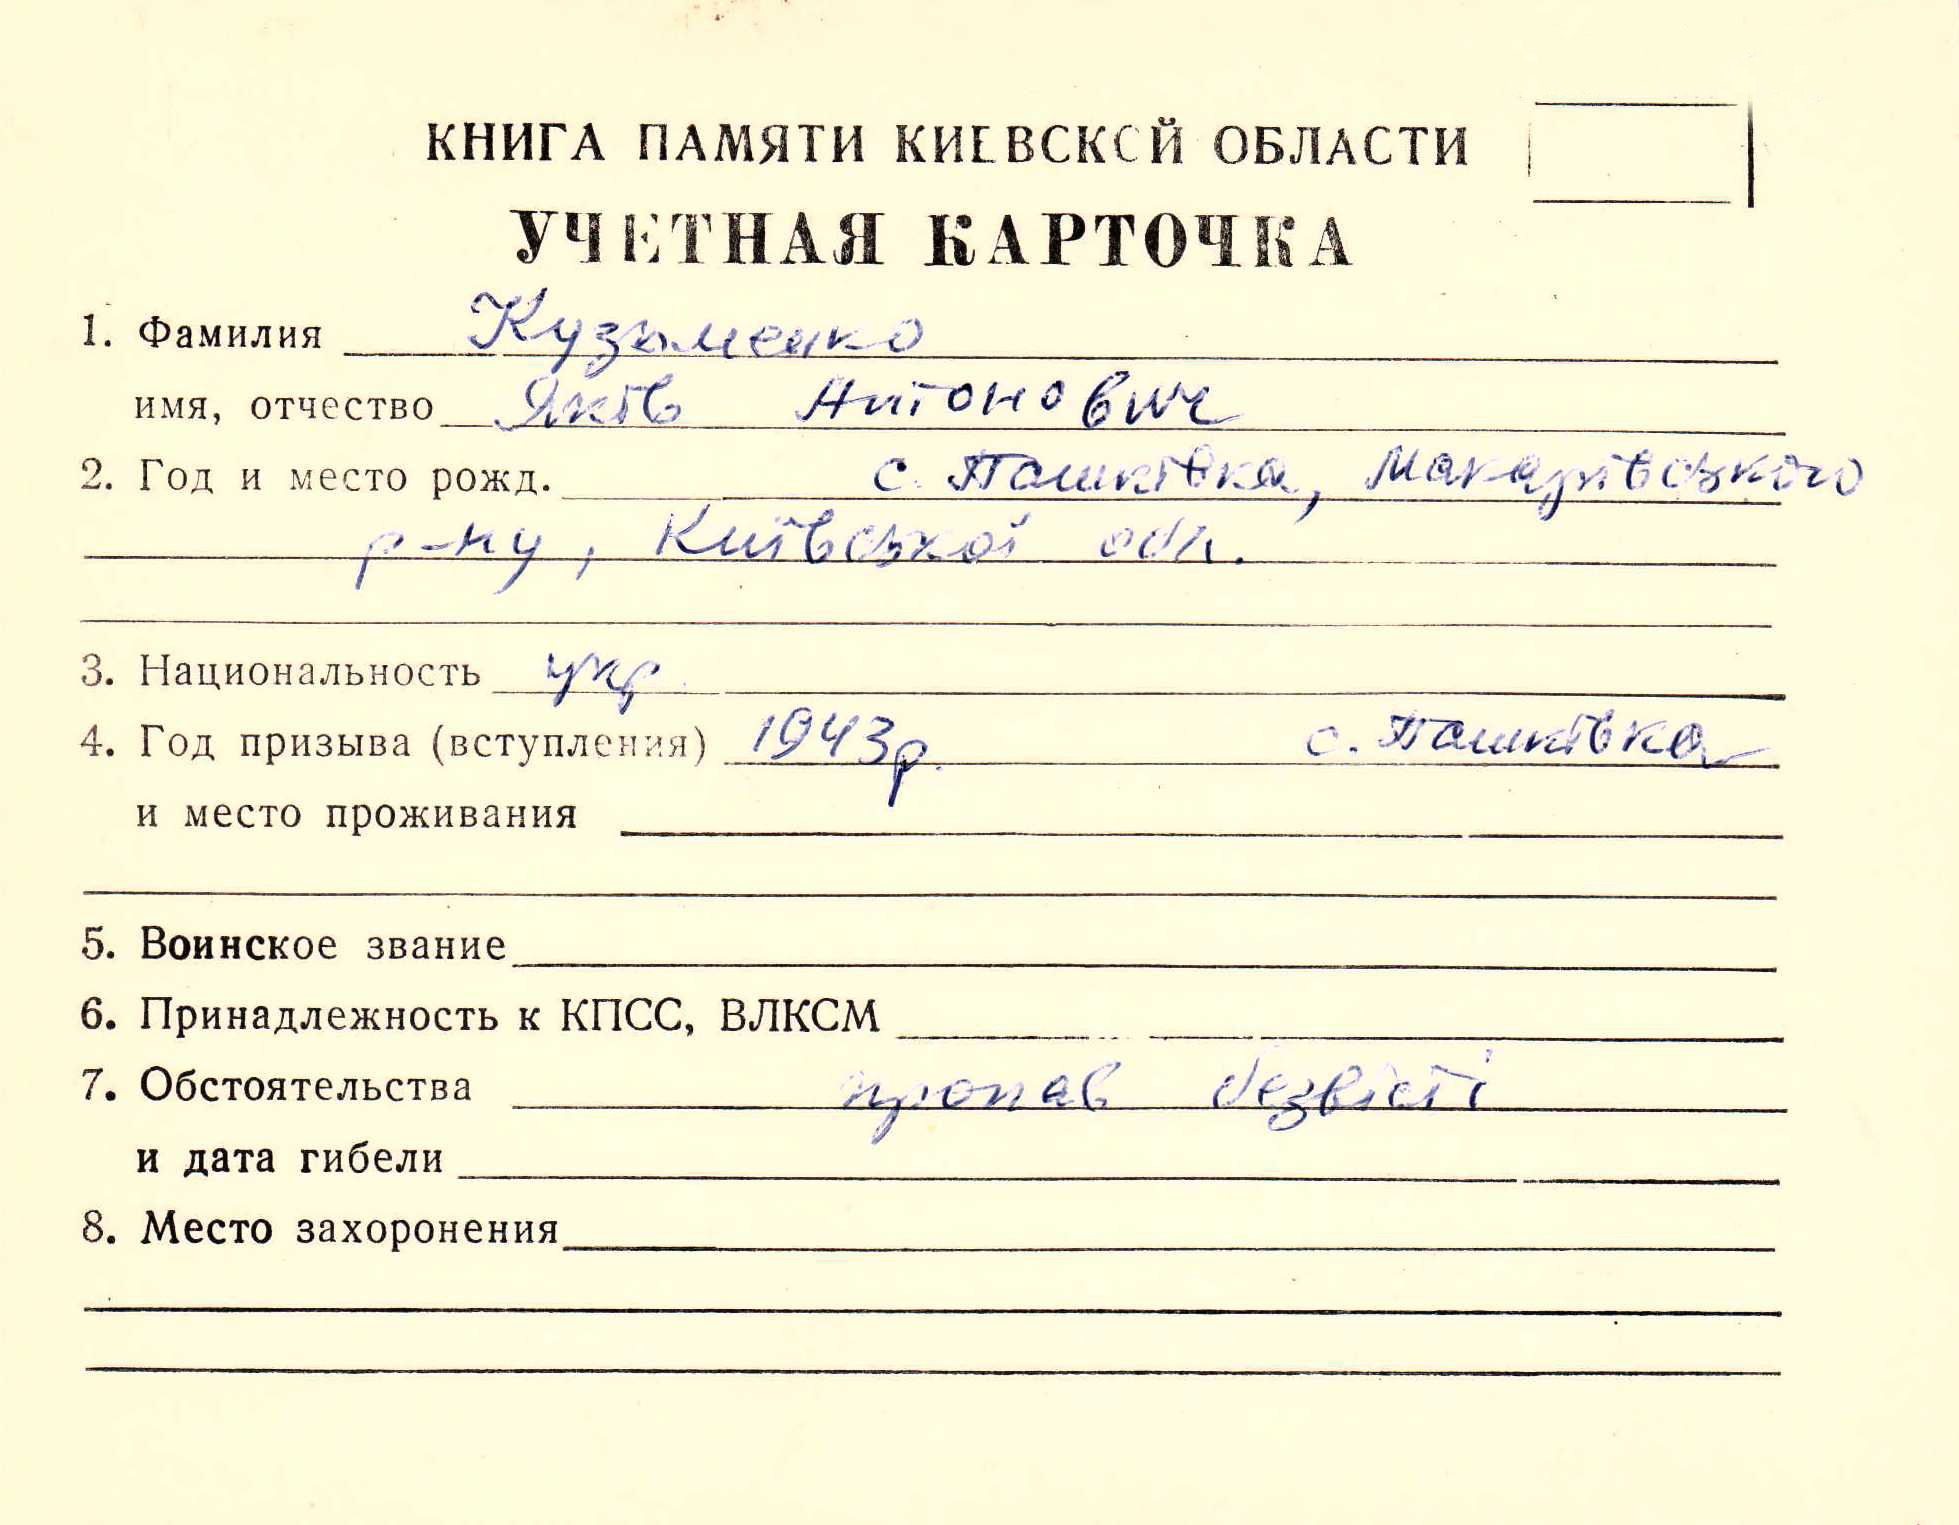 КНИГА ПАМЯТИ КИЕВСКОЙ ОБЛАСТИ
УЧЕТНАЯ КАРТОЧКА
1. Фамилия Кузьменко
имя, отчество Яків Антонович
2. Год и место рожд. с. Пашківка, Макарівського
р-ну, Київської обл.
3. Национальность укр.
4. Год призыва (вступления) 1943р. с. Пашківка
и место проживания
5. Воинское звание
6. Принадлежность к КПСС, ВЛКСМ
7. Обстоятельства пропав безвісті
и дата гибели
8. Место захоронения